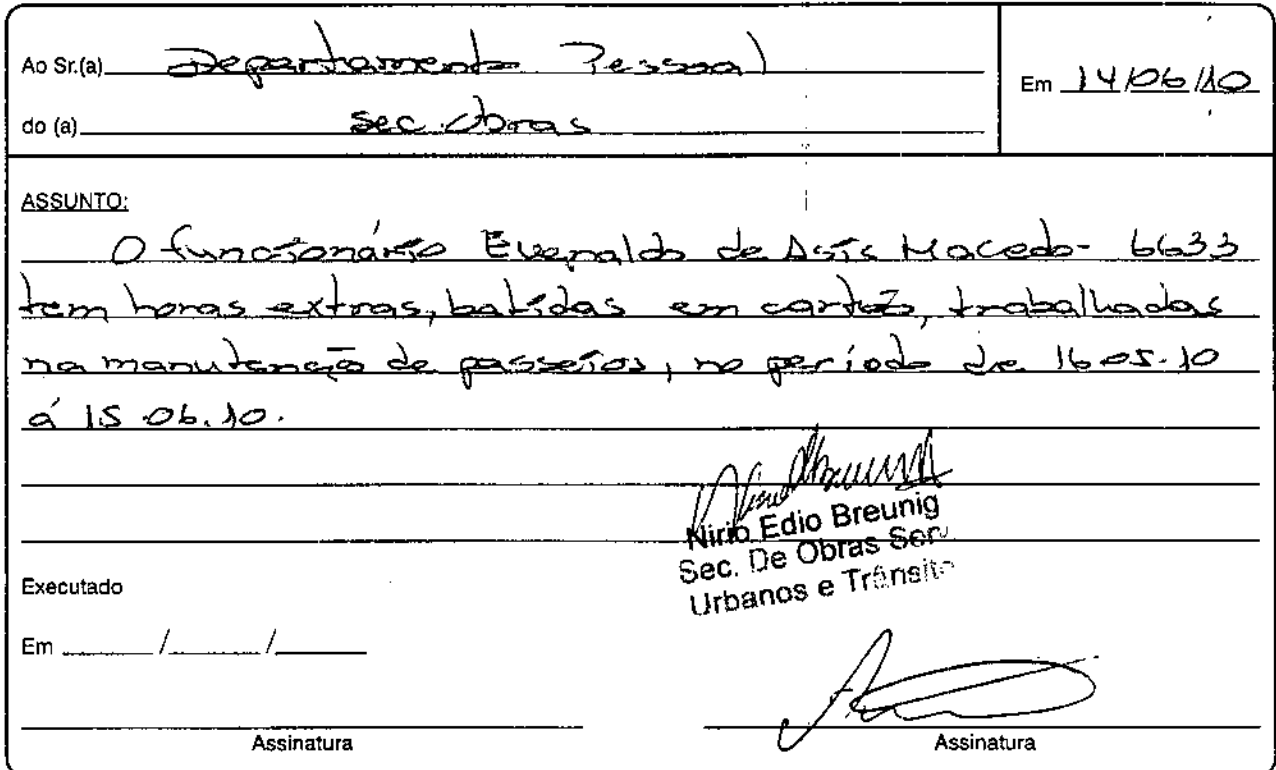 Ao Sr.(a) Departamento Pessoal
Em 14/06/10
do (a) sec. obras
ASSUNTO:
O funcionário Evenaldo de Assis Macedo - 6633
tem horas extras, batidas em cartão, trabalhadas
na manutenção de passeios, no período de 16.05.10
á 15.06.10.
Nirio Edio Breunig
Sec. De Obras Serv.
Urbanos e Trânsito
Executado
Em ____/____/____
Assinatura
Assinatura